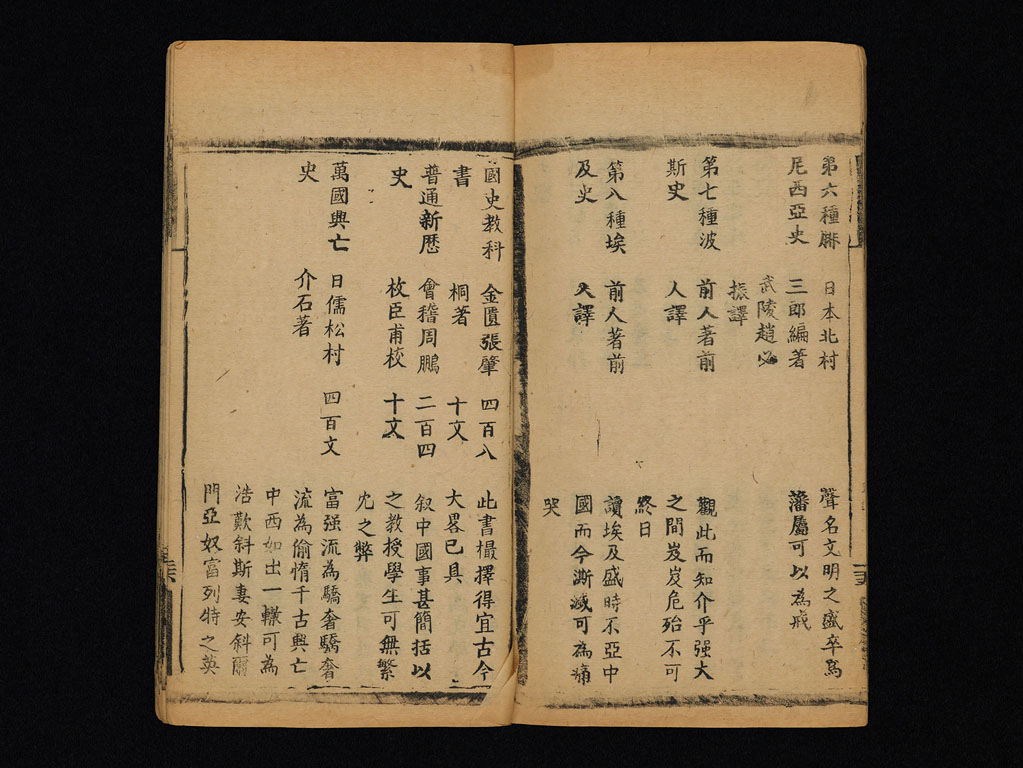 第六種腓
尼西亞史
日本北村
三郎編著
武陵趙必
振譯
聲名文明之盛卒為
藩屬可以為戒
第七種波
斯史
前人著前
人譯
觀此而知介乎强大
之間岌岌危殆不可
終日
第八種埃
及史
前人著前
人譯
讀埃及盛時不亞中
國而今澌滅可為痛
哭
國史教科
書
金匱張肇
桐著
四百八
十文
此書撮擇得宜古今
大畧已具
普通新歷
史
會稽周鵬
枚臣甫校
二百四
十文
叙中國事甚簡括以
之教授學生可無繁
冗之弊
萬國興亡
史
日儒松村
介石著
四百文
富强流為驕奢驕奢
流為偷惰千古興亡
中西如出一轍可為
浩歎斜斯妻安斜爾
門亞奴富列特之英